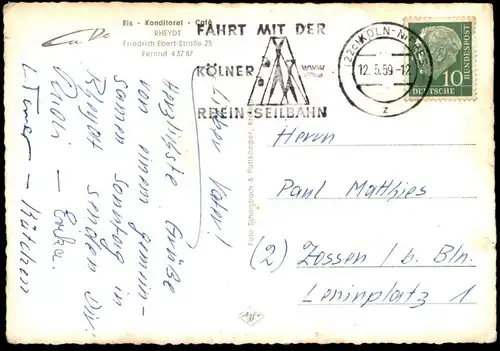 Eis - Konditorei - Café
RHEYDT
Friedrich-Ebert-Straße 25
Fernruf 4 37 87
FAHRT MIT DER
KÖLNER
RHEIN-SEILBAHN
(22c) KÖLN-
12.5.59-12
z
DEUTSCHE
BUNDESPOST
10
Lieber Vater!
Herzlichste Grüße
von einem gemein-
samen Sonntag in
Rheydt senden Dir
Rudi - Erika
- Käthchen
Foto Schumbach & Pottkämper,
Herrn
Paul Matthies
(2) Zossen / b. Bln.
Leninplatz 1